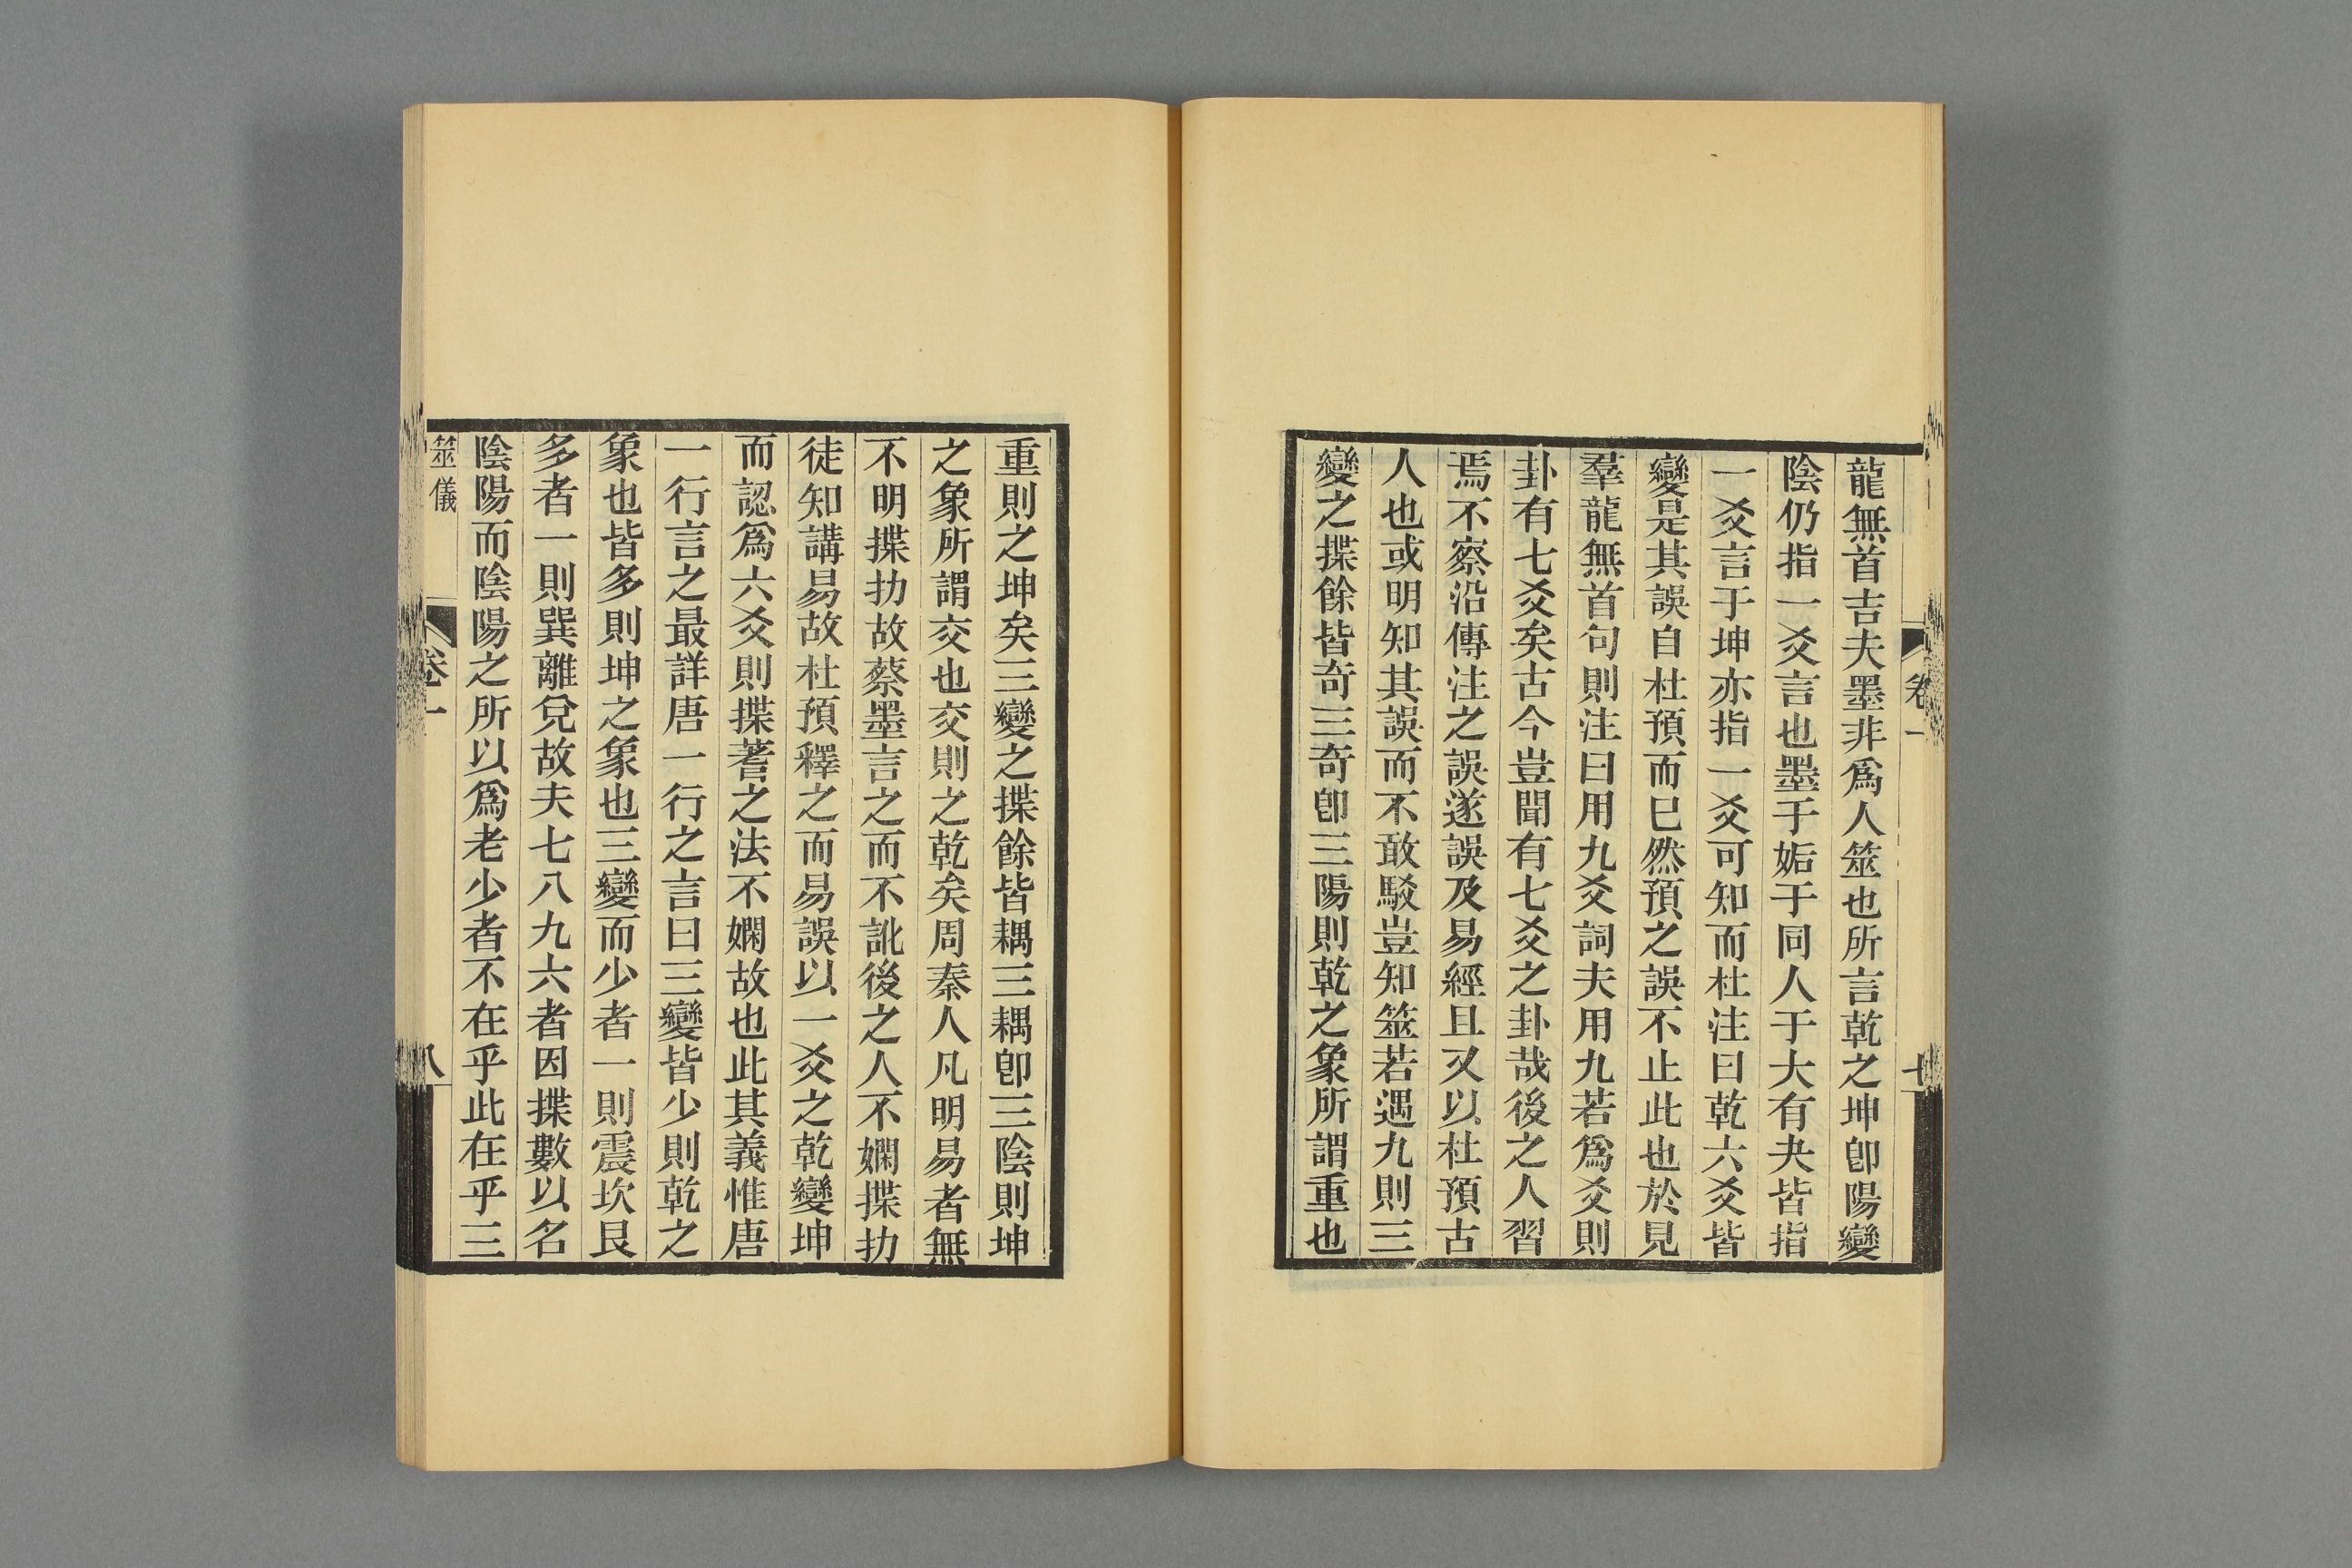 卷一
七
龍無首吉夫墨非爲人筮也所言乾之坤卽陽變
陰仍指一爻言也墨于姤于同人于大有夬皆指
一爻言于坤亦指一爻可知而杜注曰乾六爻皆
變是其誤自杜預而已然預之誤不止此也於見
羣龍無首句則注曰用九爻詞夫用九若爲爻則
卦有七爻矣古今豈聞有七爻之卦哉後之人習
焉不察沿傳注之誤遂誤及易經且又以杜預古
人也或明知其誤而不敢駁豈知筮若遇九則三
變之揲餘皆奇三奇卽三陽則乾之象所謂重也
重則之坤矣三變之揲餘皆耦三耦卽三陰則坤
之象所謂交也交則之乾矣周秦人凡明易者無
不明揲扐故蔡墨言之而不訛後之人不嫻揲扐
徒知講易故杜預釋之而易誤以一爻之乾變坤
而認爲六爻則揲蓍之法不嫻故也此其義惟唐
一行言之最詳唐一行之言曰三變皆少則乾之
象也皆多則坤之象也三變而少者一則震坎艮
多者一則巽離兌故夫七八九六者因揲數以名
陰陽而陰陽之所以爲老少者不在乎此在乎三
筮儀
卷一
八